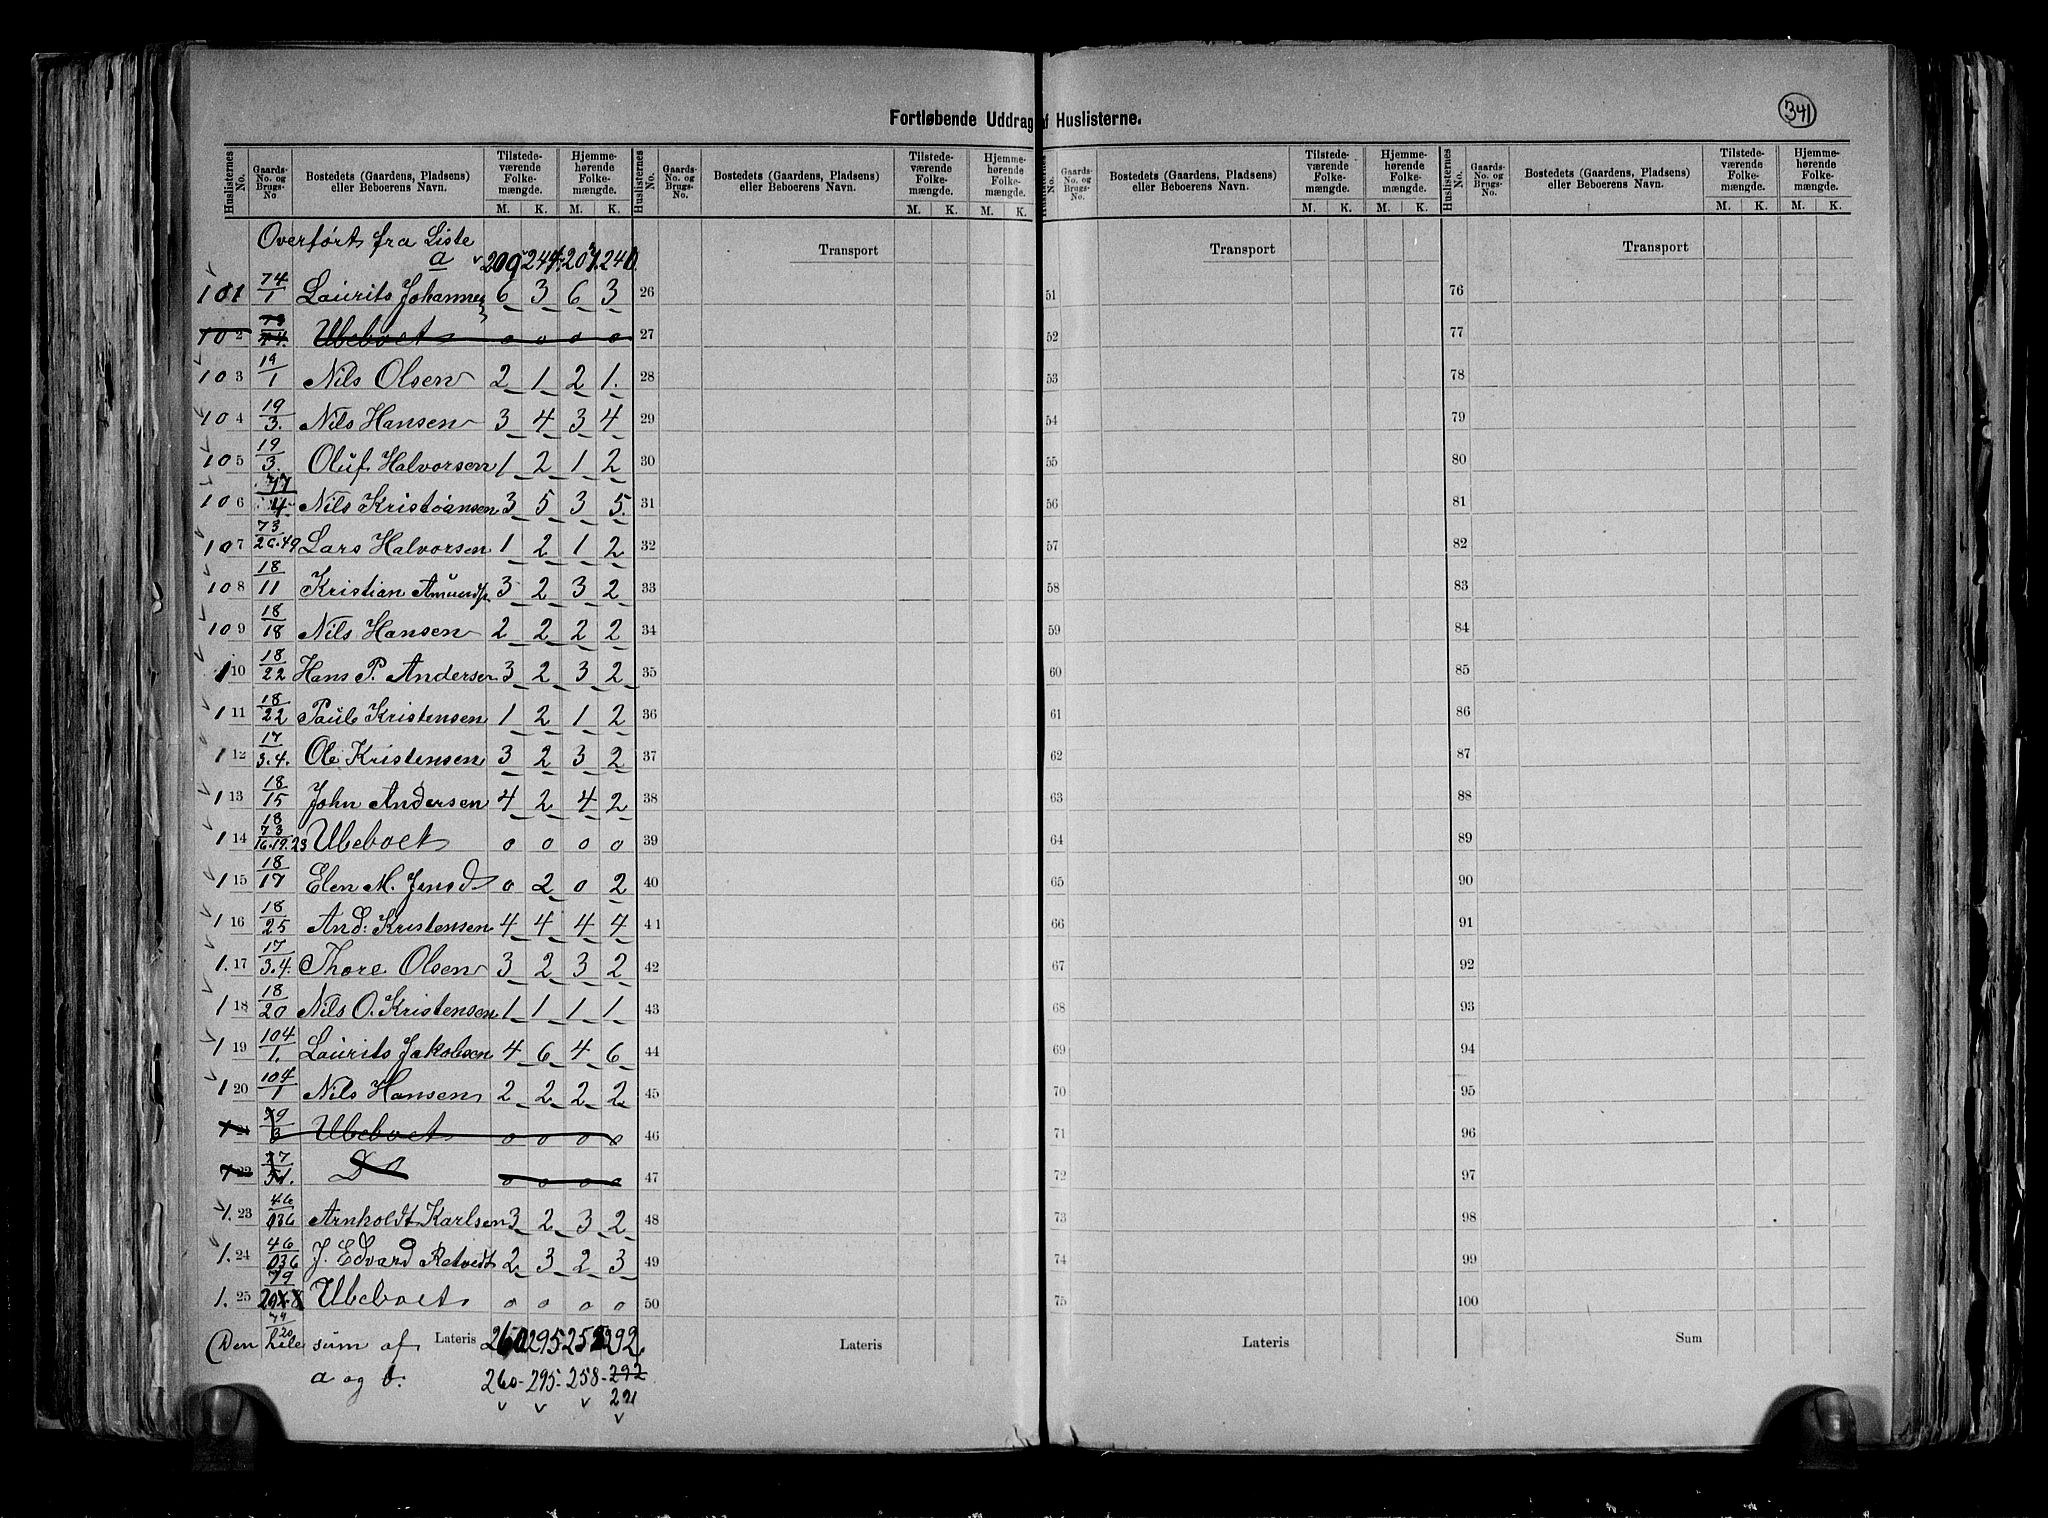 341
Fortløbende Uddrag af Huslisterne.
Huslisternes No. Gaards-No. og Brugs-No. Bostedets (Gaardens, Pladsens) eller Beboerens Navn. Tilstedeværende Folkemængde. M. K. Hjemmehørende Folkemængde. M. K.
Huslisternes No. Gaards-No. og Brugs-No. Bostedets (Gaardens, Pladsens) eller Beboerens Navn. Tilstedeværende Folkemængde. M. K. Hjemmehørende Folkemængde. M. K.
Huslisternes No. Gaards-No. og Brugs-No. Bostedets (Gaardens, Pladsens) eller Beboerens Navn. Tilstedeværende Folkemængde. M. K. Hjemmehørende Folkemængde. M. K.
Huslisternes No. Gaards-No. og Brugs-No. Bostedets (Gaardens, Pladsens) eller Beboerens Navn. Tilstedeværende Folkemængde. M. K. Hjemmehørende Folkemængde. M. K.
Overført fra Liste Transport Transport Transport
a 209
101 74/1 Laurits Johannes 6 3 6 3 26 51 76
102 Ubeboet 0 0 0 0 27 52 77
103 19/1 Nils Olsen 2 1 2 1. 28 53 78
104 19/3. Nils Hansen 3 4 3 4 29 54 79
105 19/3. Oluf Halvorsen 1 2 1 2 30 55 80
106 77/4 Nils Kristiansen 3 5 3 5. 31 56 81
107 73/26.49 Lars Halvorsen 1 2 1 2 32 57 82
108 18/11 Kristian Amunds 3 2 3 2 33 58 83
109 18/18 Nils Hansen 2 2 2 2 34 59 84
110 18/22 Hans P. Andersen 3 2 3 2 35 60 85
111 18/22 Paul Kristensen 1 2 1 2 36 61 86
112 17/3.4. Ole Kristensen 3 2 3 2 37 62 87
113 18/15 John Andersen 4 2 4 2 38 63 88
114 18 73/16.19.23 Ubeboet 0 0 0 0 39 64 89
115 18/17 Elen M. Jensd 0 2 0 2 40 65 90
116 18/25 And: Kristensen 4 4 4 4 41 66 91
1.17 17/3.4. Thore Olsen 3 2 3 2 42 67 92
118 18/20 Nils O. Kristensen 1 1 1 1 43 68 93
119 104/1. Laurits Jakobsen 4 6 4 6 44 69 94
120 104/1 Nils Hansen 2 2 2 2 45 70 95
121 79/3 Ubeboet 0 0 0 0 46 71 96
122 Do 0 0 0 0 47 72 97
1.23 46/136 Arnholdt Karlsen 3 2 3 2 48 73 98
1.24 46/036 J. Edvard Retvedt 2 3 2 3 49 74 99
1.25 79 Ubeboet 0 0 0 0 50 75 100
Den hele sum af Lateris 260 295 258 292 Lateris Lateris Sum
a og b. 260 - 295 - 258 - 292
291